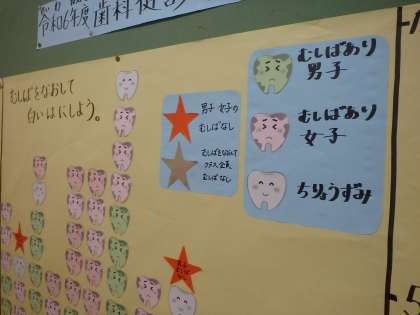 令和6年度 歯科検診
むしばをなおして
白いはにしよう。
男子 女子の
むしばなし
むしばをなおして
クラス全員
むしばなし
むしばあり
男子
むしばあり
女子
ちりょうずみ